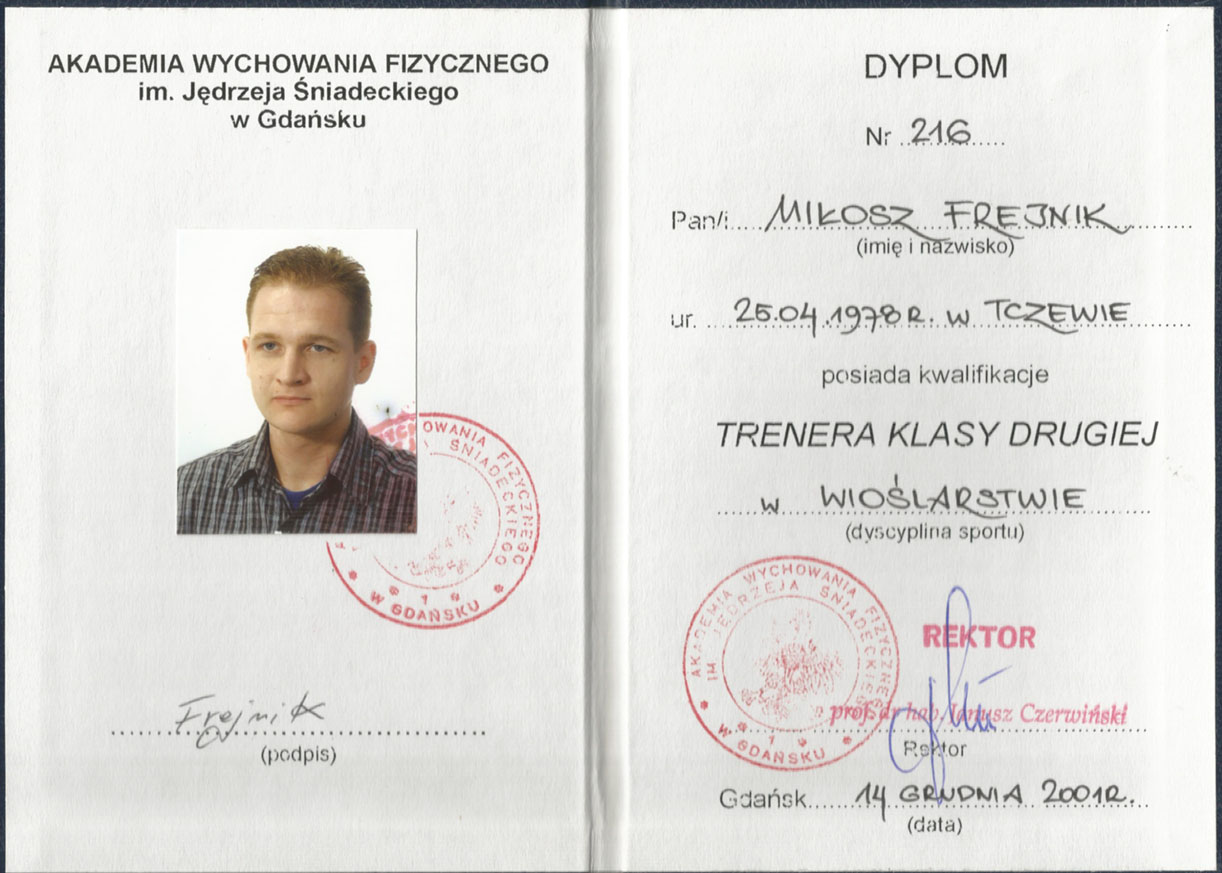 AKADEMIA WYCHOWANIA FIZYCZNEGO
im. Jędrzeja Śniadeckiego
w Gdańsku
WYCHOWANIA FIZYCZNEGO
ŚNIADECKIEGO
W GDAŃSKU
Frejnik
(podpis)
DYPLOM
Nr 216
Pan/i MIŁOSZ FREJNIK
(imię i nazwisko)
ur. 25.04.1978 R. w TCZEWIE
posiada kwalifikacje
TRENERA KLASY DRUGIEJ
w WIOŚLARSTWIE
(dyscyplina sportu)
AKADEMIA WYCHOWANIA FIZYCZNEGO
IM JĘDRZEJA ŚNIADECKIEGO
* 1 *
W GDAŃSKU
REKTOR
prof. dr hab. Janusz Czerwiński
Rektor
Gdańsk 14 GRUDNIA 2001R.
(data)